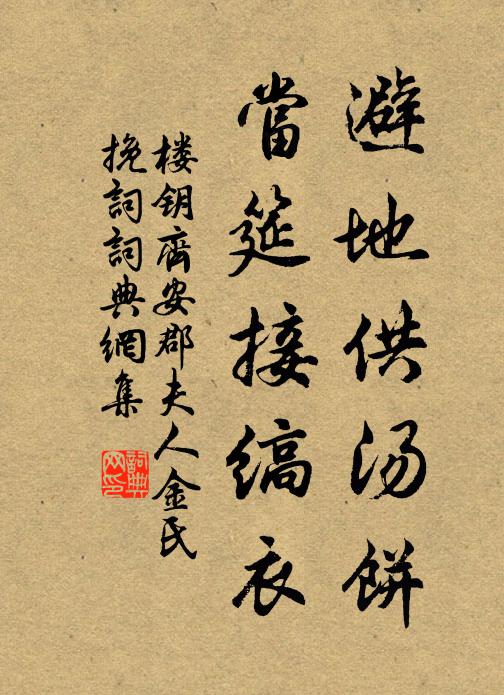 避地供汤餅
當筵接縞衣
楼钥齊安郡夫人金氏
挽詞詞典網集
詞典
网印